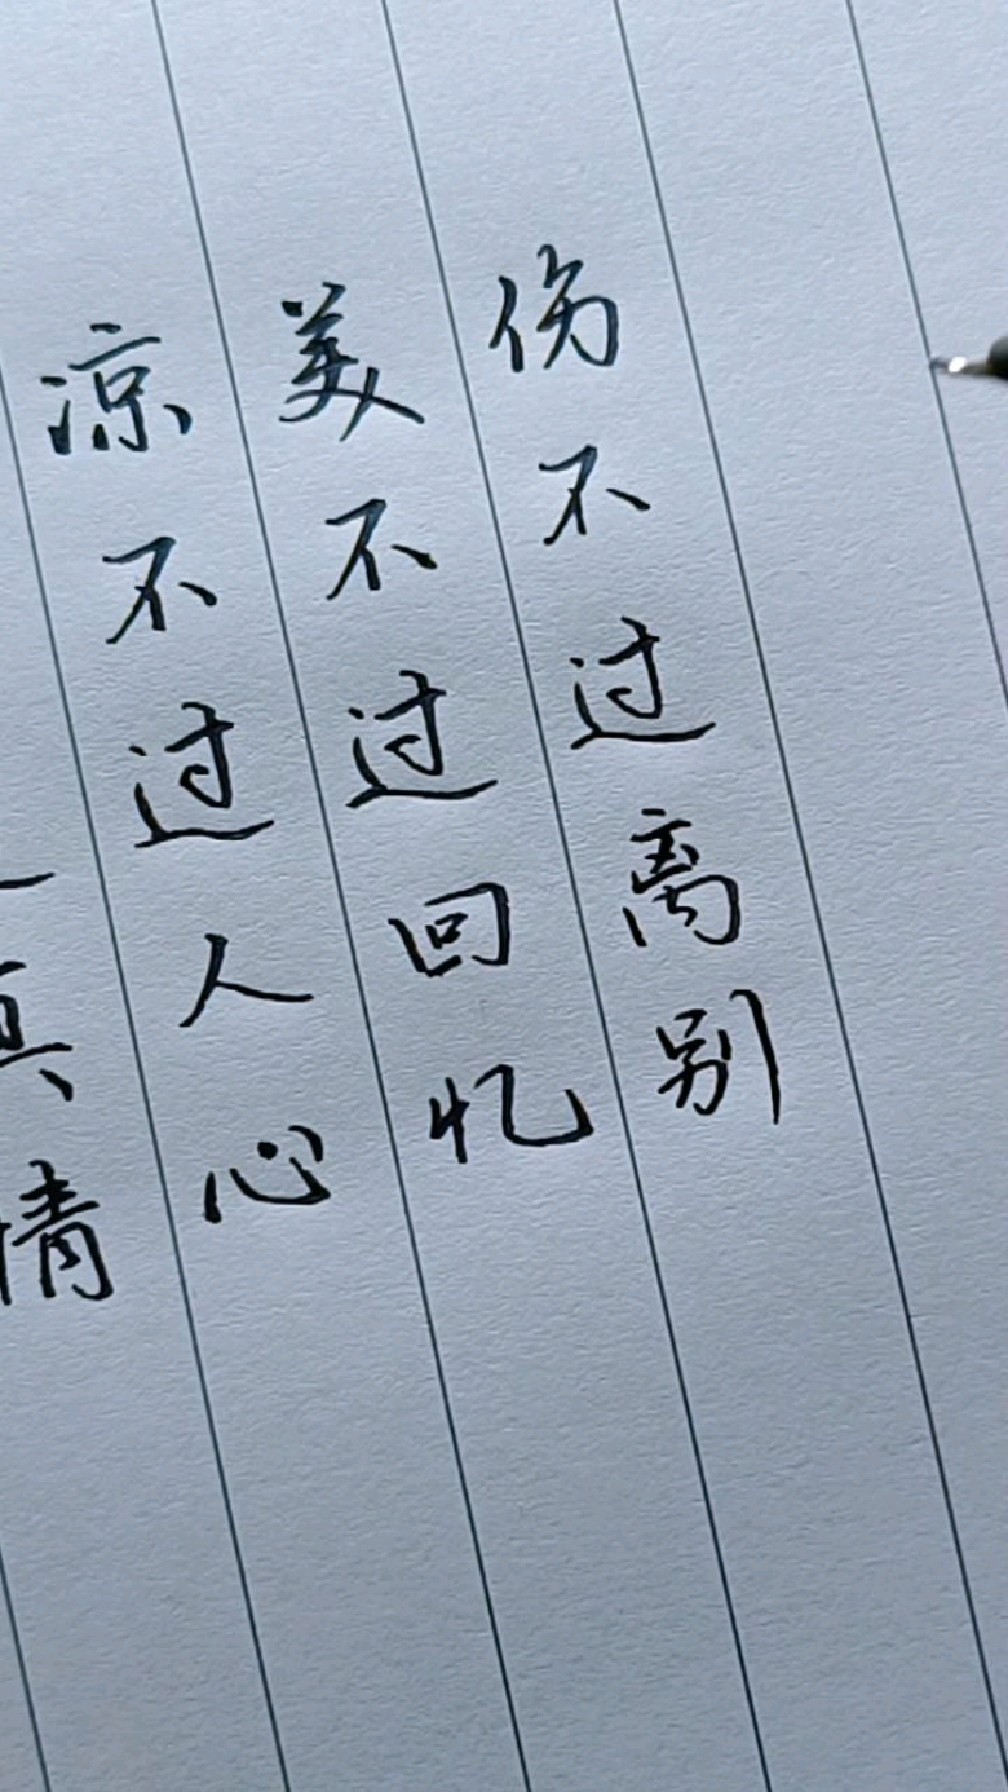 真情
凉不过人心
美不过回忆
伤不过离别